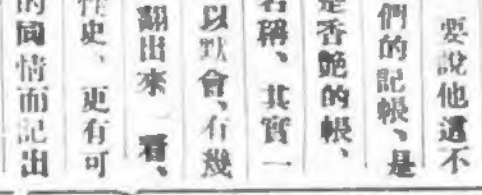 要說他還不
們的記帳、是
是香艷的帳、
名稱、其實一
以默會、有幾
翻出來一看、
性史、更有可
的同情而記出